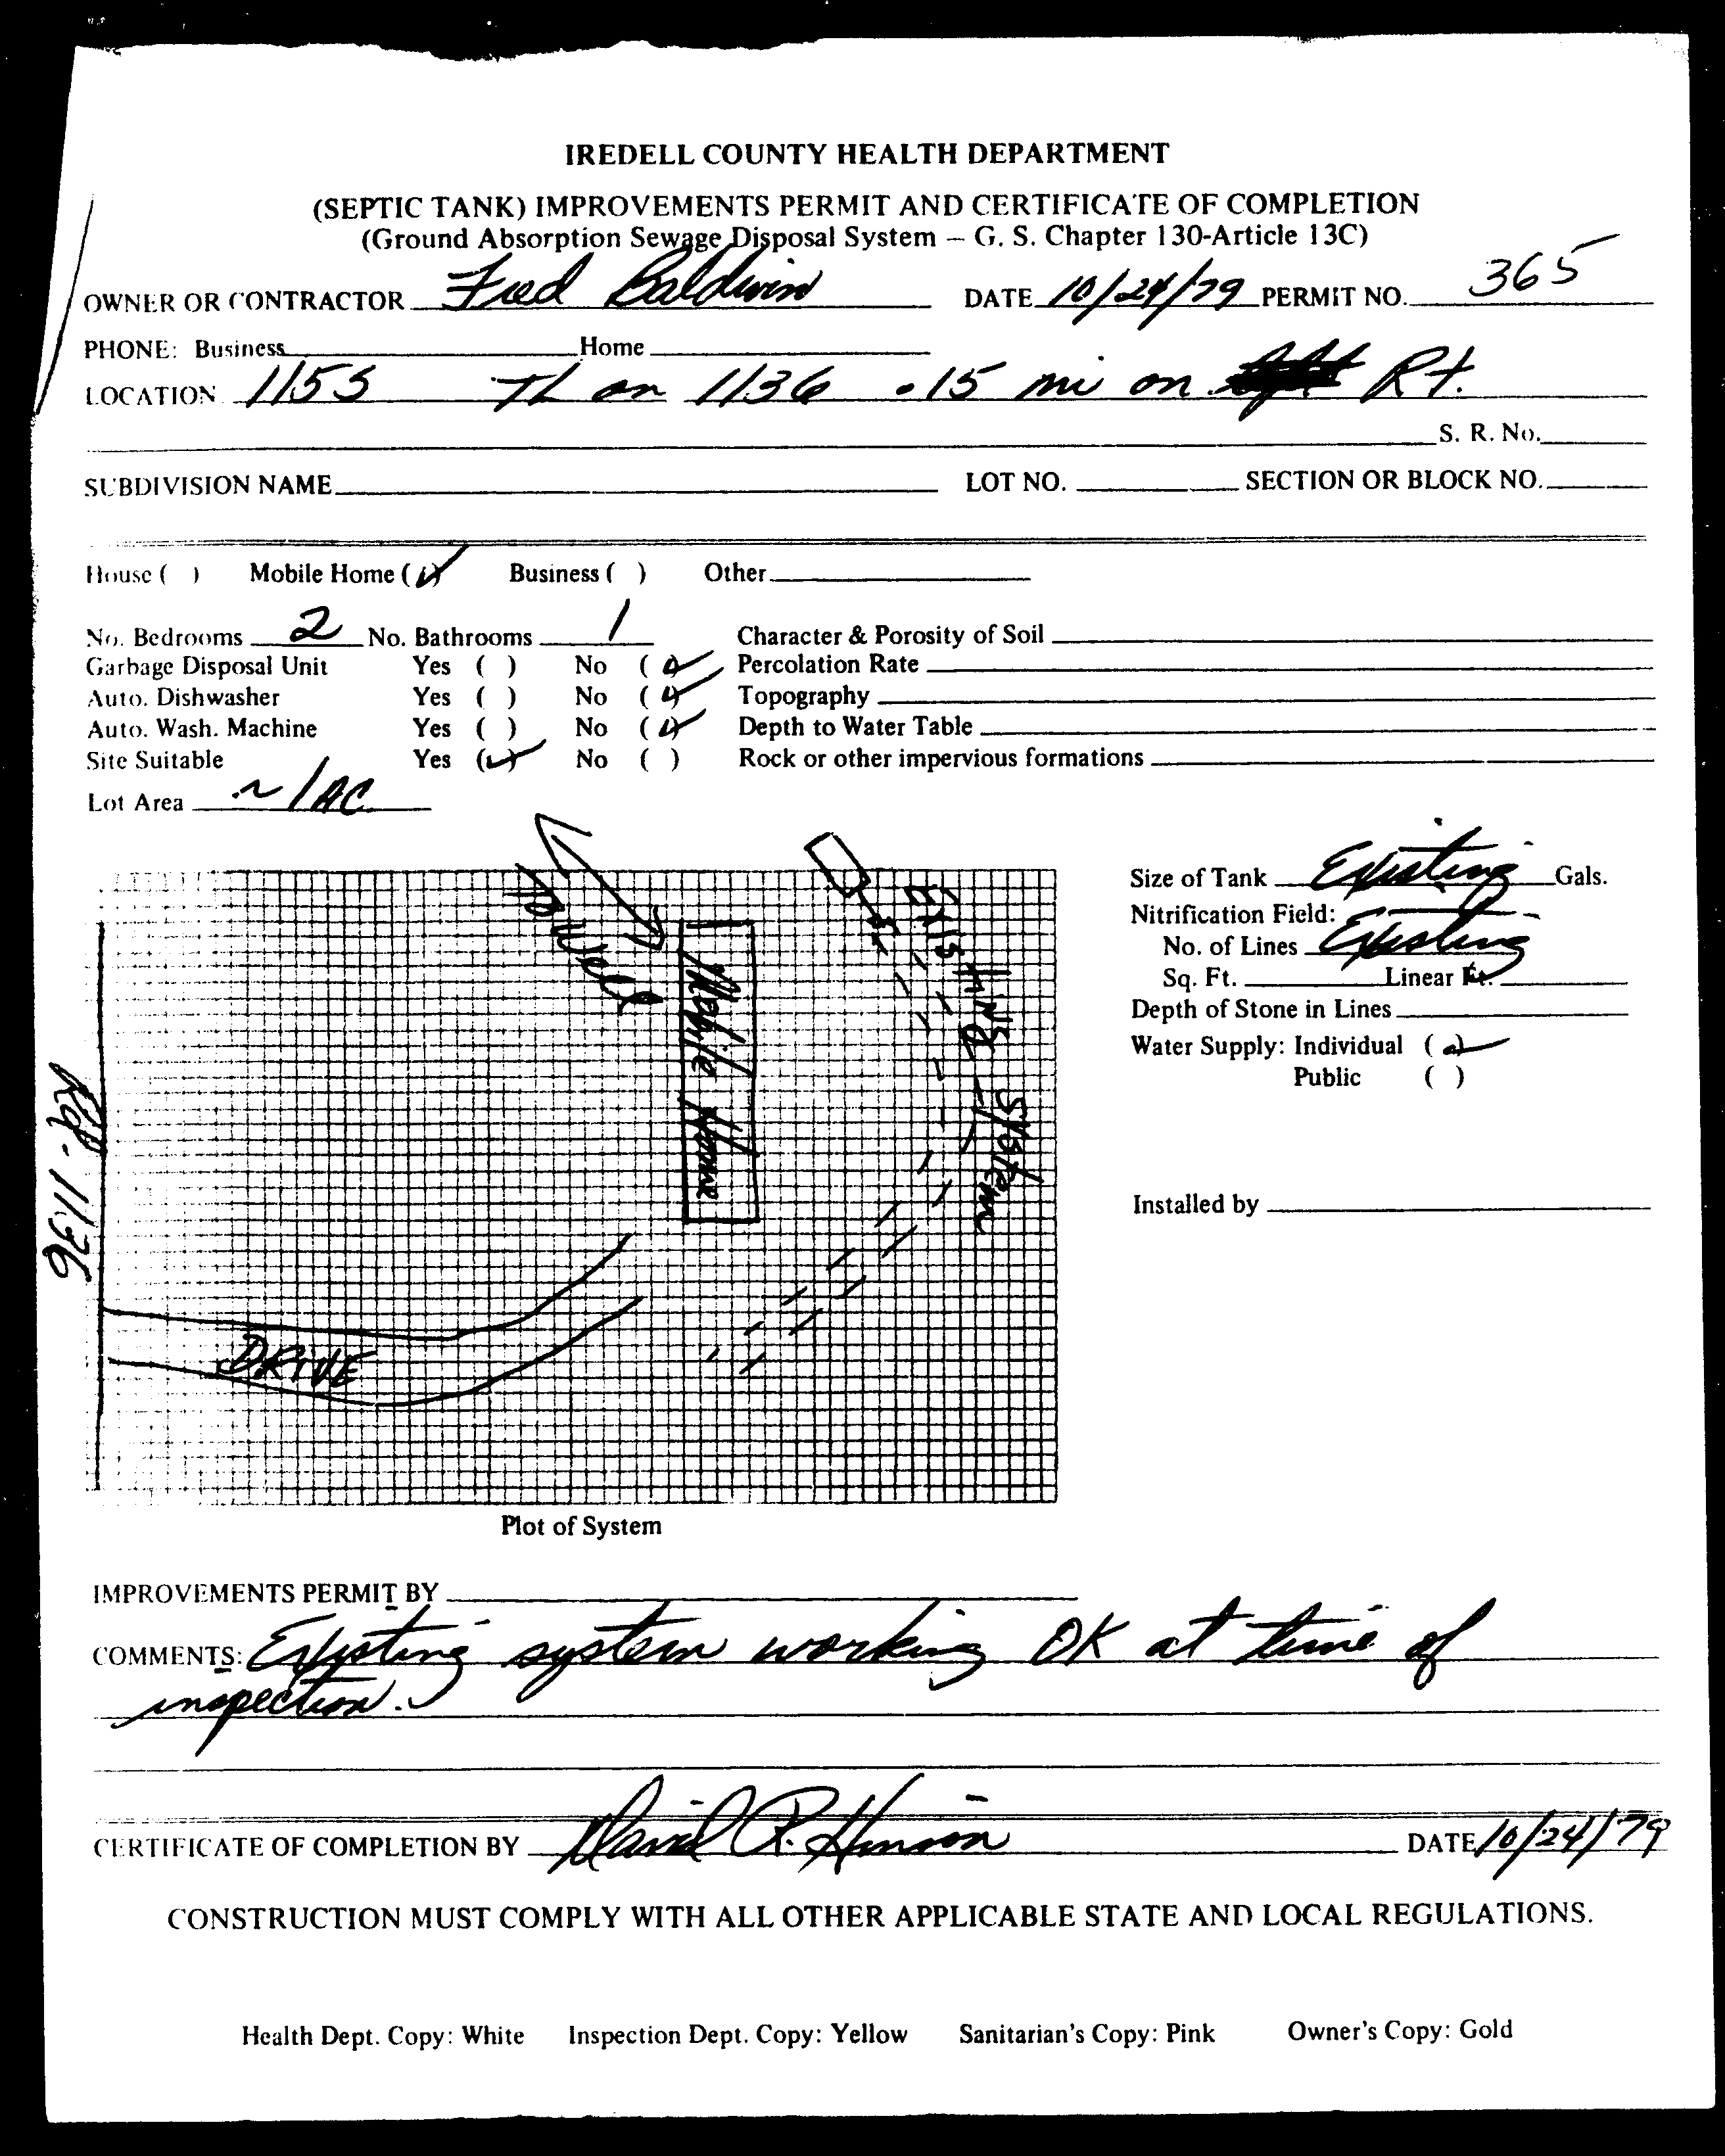 IREDELL COUNTY HEALTH DEPARTMENT
(SEPTIC TANK) IMPROVEMENTS PERMIT AND CERTIFICATE OF COMPLETION
(Ground Absorption Sewage Disposal System – G. S. Chapter 130-Article 13C)
OWNER OR CONTRACTOR Fred Baldwin DATE 10/24/79 PERMIT NO. 365
PHONE: Business Home
LOCATION 1155 TL on 1136 .15 mi on left Rt.
S. R. No.
SUBDIVISION NAME LOT NO. SECTION OR BLOCK NO.
House ( ) Mobile Home (✓) Business ( ) Other
No. Bedrooms 2 No. Bathrooms 1 Character & Porosity of Soil
Garbage Disposal Unit Yes ( ) No (✓) Percolation Rate
Auto. Dishwasher Yes ( ) No (✓) Topography
Auto. Wash. Machine Yes ( ) No (✓) Depth to Water Table
Site Suitable Yes (✓) No ( ) Rock or other impervious formations
Lot Area ~ 1 AC
Size of Tank Existing Gals.
Nitrification Field:
No. of Lines Existing
Sq. Ft. Linear Ft.
Depth of Stone in Lines
Water Supply: Individual (✓)
Public ( )
Installed by
To Well
Mobile Home
EXISTING System
Rd. 1136
DRIVE
Plot of System
IMPROVEMENTS PERMIT BY
COMMENTS: Existing system working OK at time of
inspection.
CERTIFICATE OF COMPLETION BY David R. Hinson DATE 10/24/79
CONSTRUCTION MUST COMPLY WITH ALL OTHER APPLICABLE STATE AND LOCAL REGULATIONS.
Health Dept. Copy: White Inspection Dept. Copy: Yellow Sanitarian's Copy: Pink Owner's Copy: Gold